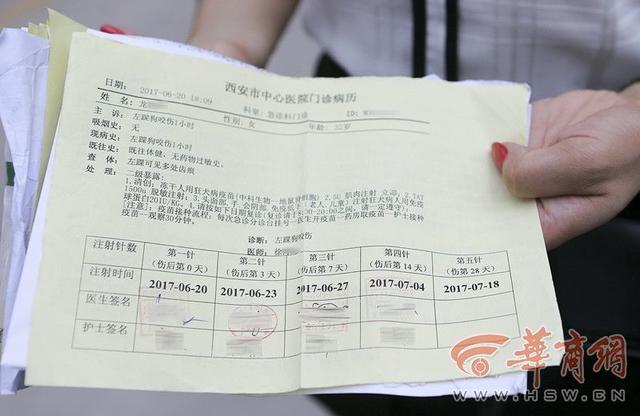 西安市中心医院门诊病历
日期: 2017-06-20 18:09 科室: 急诊科门诊 ID: W
姓 名: 龙 性别: 女 年龄: 32岁
主 诉: 左踝狗咬伤1小时
吸烟史: 无
现病史: 左踝狗咬伤1小时
既往史: 既往体健、无药物过敏史。
查 体: 左踝可见多处齿痕
处 理: 二级暴露:
1.清创; 冻干人用狂犬病疫苗(中科生物—地鼠肾细胞) 2.5U 肌肉注射 立即; 2.TAT
1500u 脱敏注射; 3.头面部、手、会阴部、免疫低下(老人,儿童)注射狂犬病人用免疫
球蛋白20IU/KG。4.请按如下日期复诊(复诊请于8:00-20:00之间,请一定遵守)
[注意]: 疫苗接种流程: 每次急诊分诊台挂号—医生开疫苗—药房取疫苗—护士接种
疫苗—观察30分钟。
诊断: 左踝狗咬伤
医师: 徐
注射针数 第一针 (伤后第 0 天) 第二针 (伤后第 3 天) 第三针 (伤后第 7 天) 第四针 (伤后第 14 天) 第五针 (伤后第 28 天)
注射时间 2017-06-20 2017-06-23 2017-06-27 2017-07-04 2017-07-18
医生签名
护士签名
华商网
WWW.HSW.CN